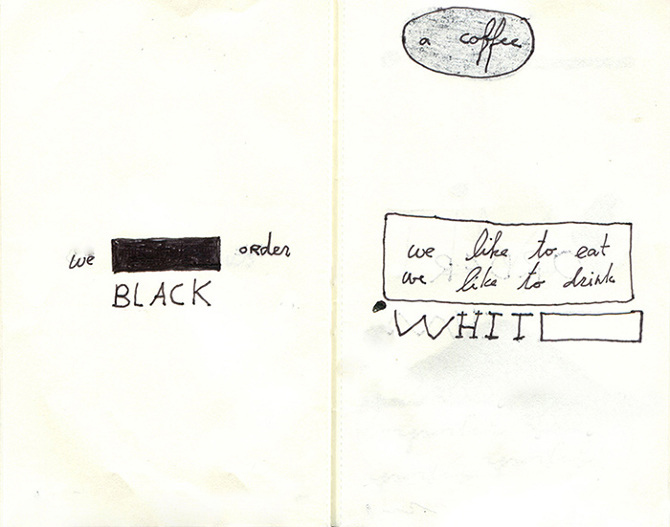 we order
BLACK
a coffee
we like to eat
we like to drink
WHIT